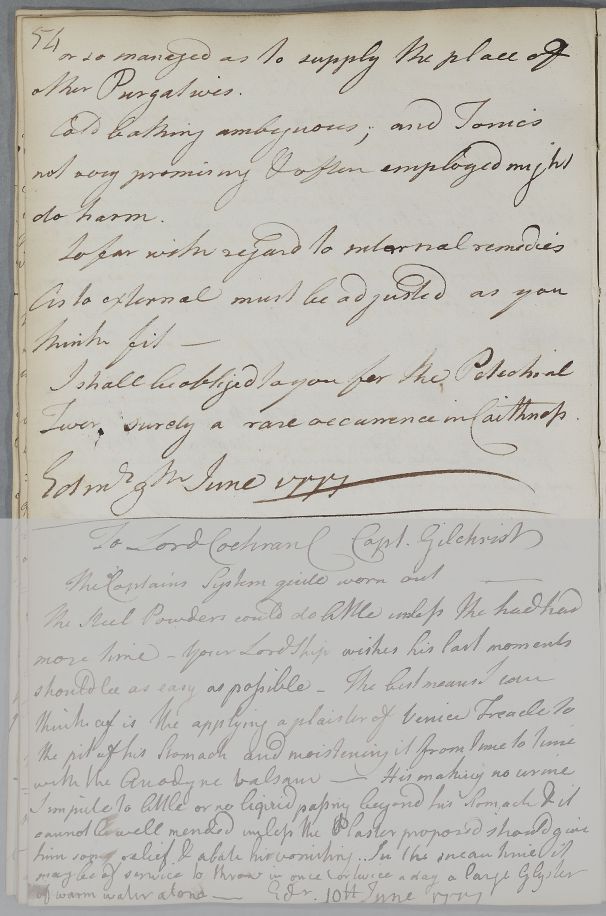 54
or so managed as to supply the place of
other Purgatives.
Cold bathing ambiguous; and Tonics
not very promising & often employed might
do harm.
So far with regard to internal remedies
As to external must be adjusted as you
think fit —
I shall be obliged to you for the Petechial
Fever, surely a rare occurrence in Caithness.
Edinr 9th June 1777
To Lord Cochran Capt. Gilchrist
The Captains System quite worn out
The Steel Powders could do little unless he had had
more time – Your Lordship wishes his last moments
should be as easy as possible – The best means I can
think of is the applying a plaister of Venice Treacle to
the pit of his Stomach and moistening it from time to time
with the Anodyne balsam — His making no urine
I impute to little or no liquid passing beyond his Stomach & it
cannot be well mended unless the Plaster proposed should give
him some relief & abate his vomiting. In the mean time it
may be of service to throw in once or twice a day a large Glyster
of warm water alone — Edr. 10th June 1777